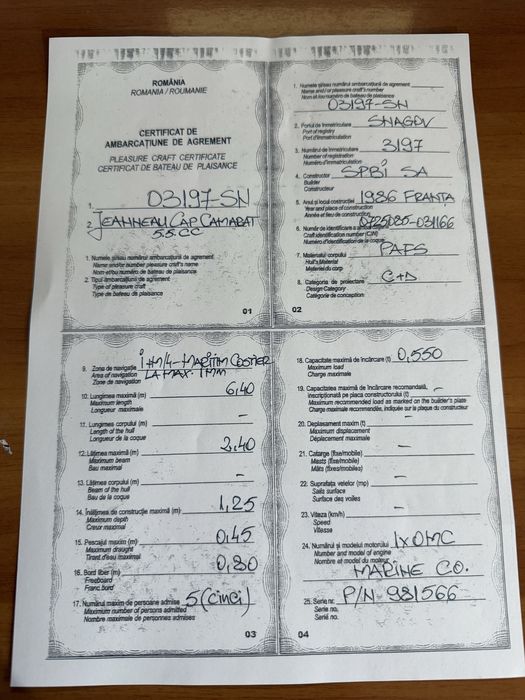 ROMÂNIA
ROMANIA / ROUMANIE
CERTIFICAT DE
AMBARCAȚIUNE DE AGREMENT
PLEASURE CRAFT CERTIFICATE
CERTIFICAT DE BATEAU DE PLAISANCE
1. 03197-SN
2. JEANNEAU CAP CAMARAT
5.5 CC
1. Numele și/sau numărul ambarcațiunii de agrement
Name and/or number pleasure craft's name
Nom et/ou numéro de bateau de plaisance
2. Tipul ambarcațiunii de agrement
Type of pleasure craft
Type de bateau de plaisance
01
1. Numele și/sau numărul ambarcațiunii de agrement
Name and/or pleasure craft's number
Nom et/ou numéro de bateau de plaisance
03197-SN
2. Portul de înmatriculare SNAGOV
Port of registry
Port d'immatriculation
3. Numărul de înmatriculare 3197
Number of registration
Numéro d'immatriculation
4. Constructor SPBI SA
Builder
Constructeur
5. Anul și locul construcției 1986 FRANȚA
Year and place of construction
Année et lieu de construction
6. Număr de identificare a
Craft identification number (CIN)
Numéro d'identification de la coque
7. Materialul corpului PAFS
Hull's Material
Matériel du corps
8. Categoria de proiectare C+D
Design Category
Catégorie de conception:
02
9. Zona de navigație MARITIM COSTIER
Area of navigation LA MAX. 1 MM
Zone de navigation
10. Lungimea maximă (m) 6,40
Maximum length
Longueur maximale
11. Lungimea corpului (m) –
Length of the hull
Longueur de la coque
12. Lățimea maximă (m) 2,40
Maximum beam
Bau maximal
13. Lățimea corpului (m) –
Beam of the hull
Bau de la coque
14. Înălțimea de construcție maximă (m) 1,25
Maximum depth
Creux maximal
15. Pescajul maxim (m) 0,45
Maximum draught
Tirant d'eau maximal
16. Bord liber (m) 0,80
Freeboard
Franc bord
17. Numărul maxim de persoane admise 5 (cinci)
Maximum number of persons admitted
Nombre maximale de personnes admises
03
18. Capacitate maximă de încărcare (t) 0,550
Maximum load
Charge maximale
19. Capacitatea maximă de încărcare recomandată, –
inscripționată pe placa constructorului (t)
Maximum recommended load as marked on the builder's plate
Charge maximale recommandée, indiquée sur la plaque du constructeur
20. Deplasament maxim (t) –
Maximum displacement
Déplacement maximale
21. Catarge (fixe/mobile) –
Masts (fixe/mobile)
Mâts (fixes/mobiles)
22. Suprafața velelor (mp) –
Sails surface
Surface des voiles
23. Viteza (km/h) –
Speed
Vitesse
24. Numărul și modelul motorului 1x OMC
Number and model of engine
Nombre et model du moteur
MARINE CO.
25. Serie nr. P/N-981566
Serie no.
Serie no.
04